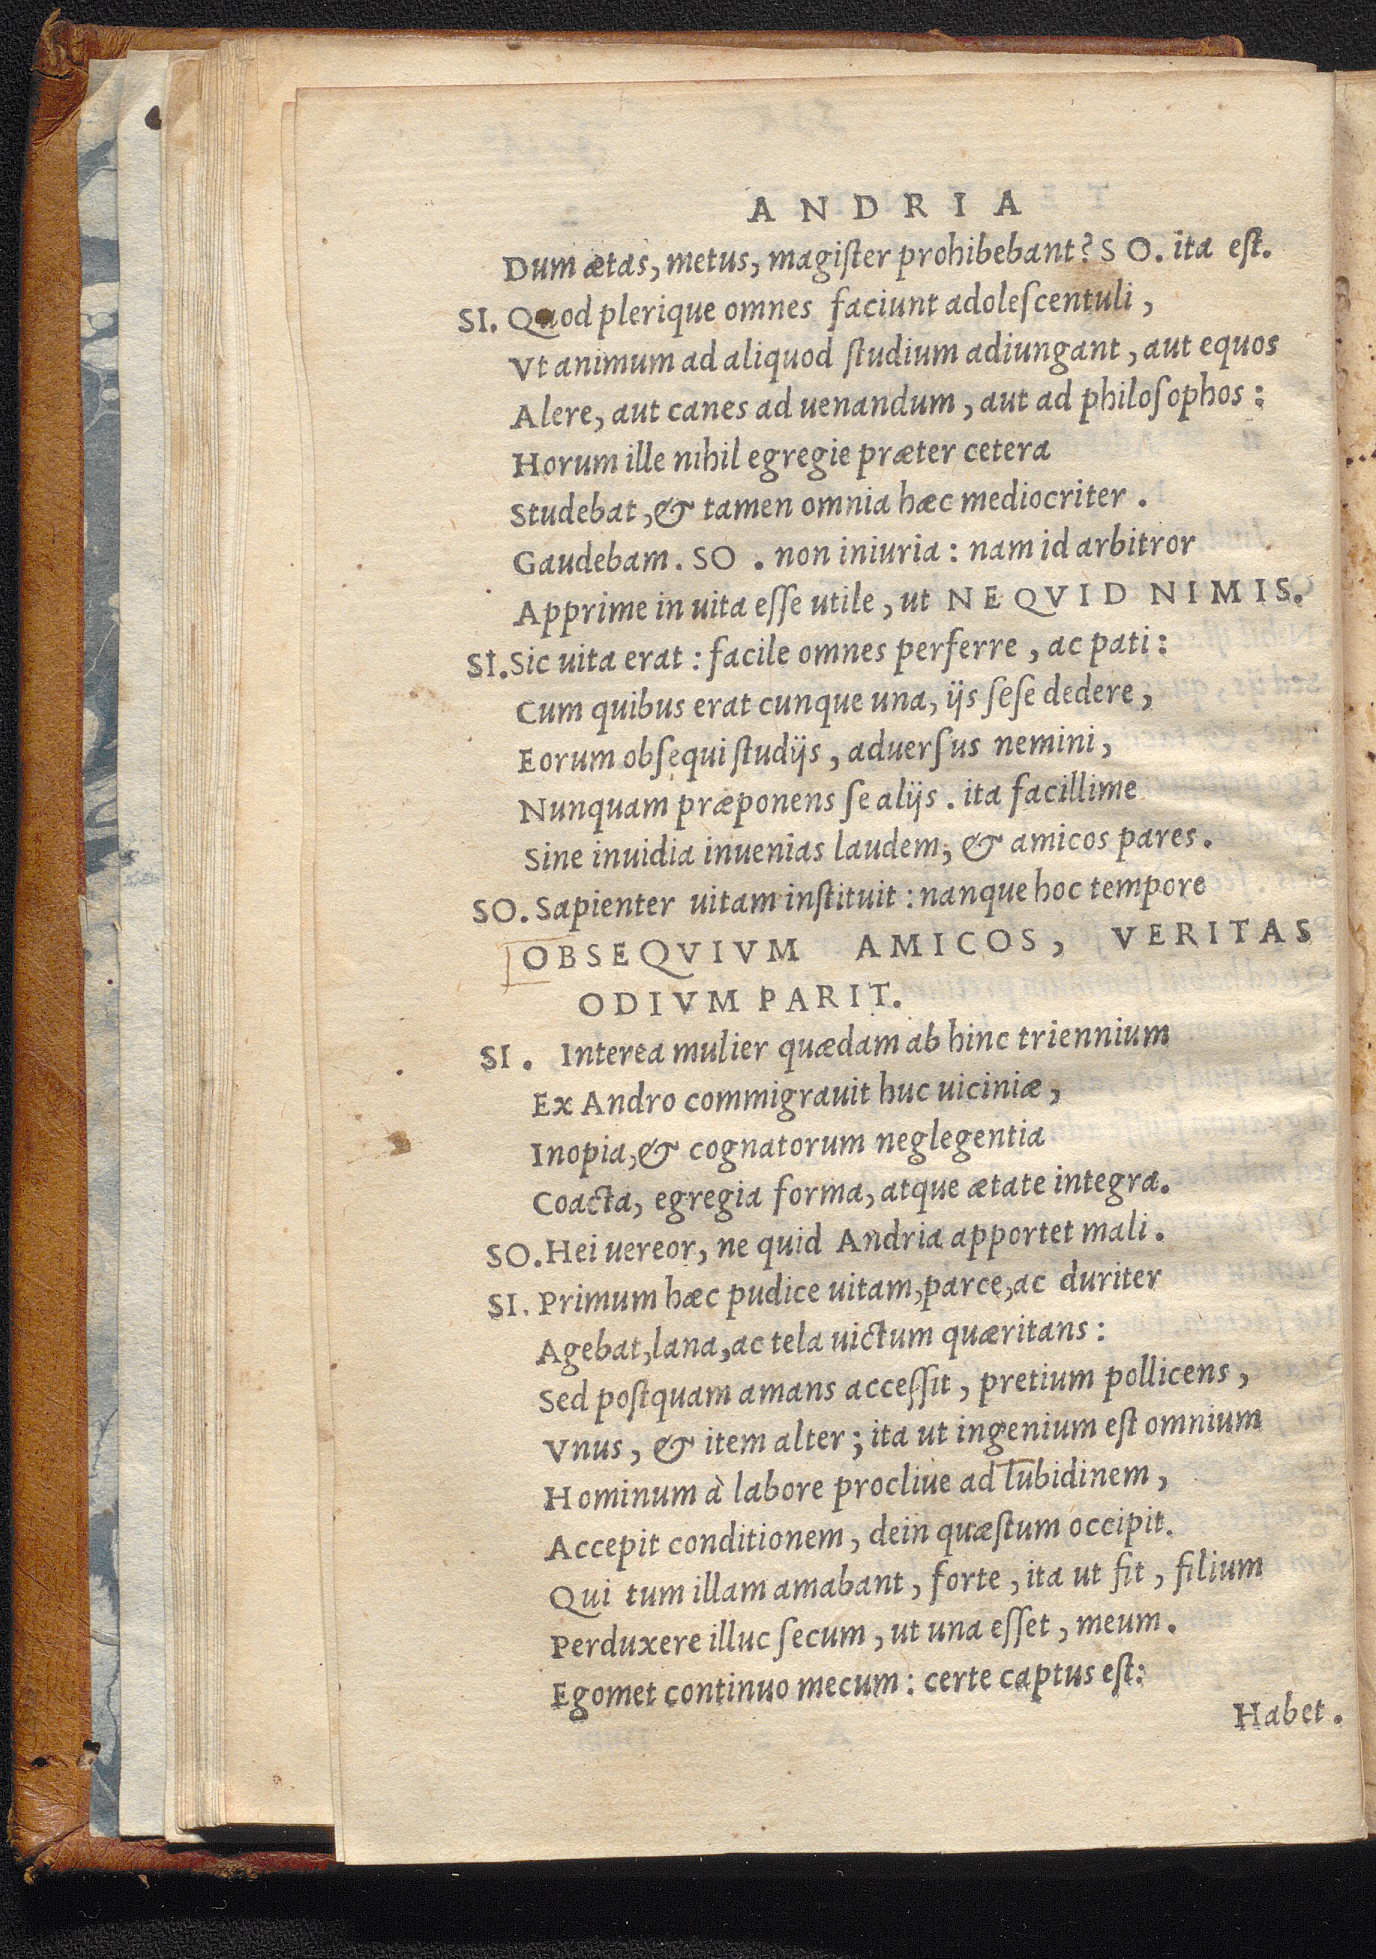 ANDRIA
Dum ætas, metus, magiſter prohibebant? SO. ita eſt.
SI. Quod plerique omnes faciunt adoleſcentuli,
Vt animum ad aliquod ſtudium adiungant, aut equos
Alere, aut canes ad uenandum, aut ad philoſophos:
Horum ille nihil egregie præter cetera
Studebat, & tamen omnia hæc mediocriter.
Gaudebam. SO. non iniuria: nam id arbitror
Apprime in uita eſſe utile, ut NE QVID NIMIS.
SI. Sic uita erat: facile omnes perferre, ac pati:
Cum quibus erat cunque una, ijs ſeſe dedere,
Eorum obſequi ſtudijs, aduerſus nemini,
Nunquam præponens ſe alijs. ita facillime
Sine inuidia inuenias laudem, & amicos pares.
SO. Sapienter uitam inſtituit: nanque hoc tempore
OBSEQVIVM AMICOS, VERITAS
ODIVM PARIT.
SI. Interea mulier quædam ab hinc triennium
Ex Andro commigrauit huc uiciniæ,
Inopia, & cognatorum neglegentia
Coacta, egregia forma, atque ætate integra.
SO. Hei uereor, ne quid Andria apportet mali.
SI. Primum hæc pudice uitam, parce, ac duriter
Agebat, lana, ac tela uictum quæritans:
Sed poſtquam amans acceſſit, pretium pollicens,
Vnus, & item alter; ita ut ingenium eſt omnium
Hominum à labore procliue ad lubidinem,
Accepit conditionem, dein quæſtum occipit.
Qui tum illam amabant, forte, ita ut fit, filium
Perduxere illuc ſecum, ut una eſſet, meum.
Egomet continuo mecum: certe captus eſt:
Habet.